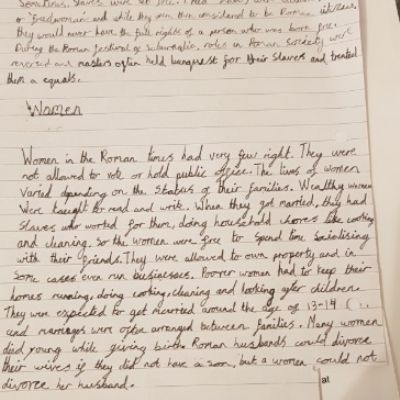 Sometimes, slaves were set free.
or 'freedwoman' and while they were then considered to be Roman citizens,
they would never have the full rights of a person who was born free.
During the Roman festival of Saturnalia, roles in Roman Society were
reversed and masters often held banquest for their slaves and treated
them a equals.
Women
Women in the Roman times had very few right. They were
not allowed to vote or hold public office. The lives of women
varied dpanding on the status of their families. Wealthy women
were taught to read and write. When they got married, they had
slaves who worked for them, doing household chores like cooking
and cleaning. So the women were free to spend time socialising
with their friends. They were allowed to own property and in
some cases even run businesses. Poorer woman had to keep their
homes running, doing cooking, cleaning and looking after children
They were expected to get married around the age of 13-14 (
and marriages were often arranged between families. Many women
died young while giving birth. Roman husbands could divorce
their wives if they did not have a son, but a women could not
divorce her husband.
al